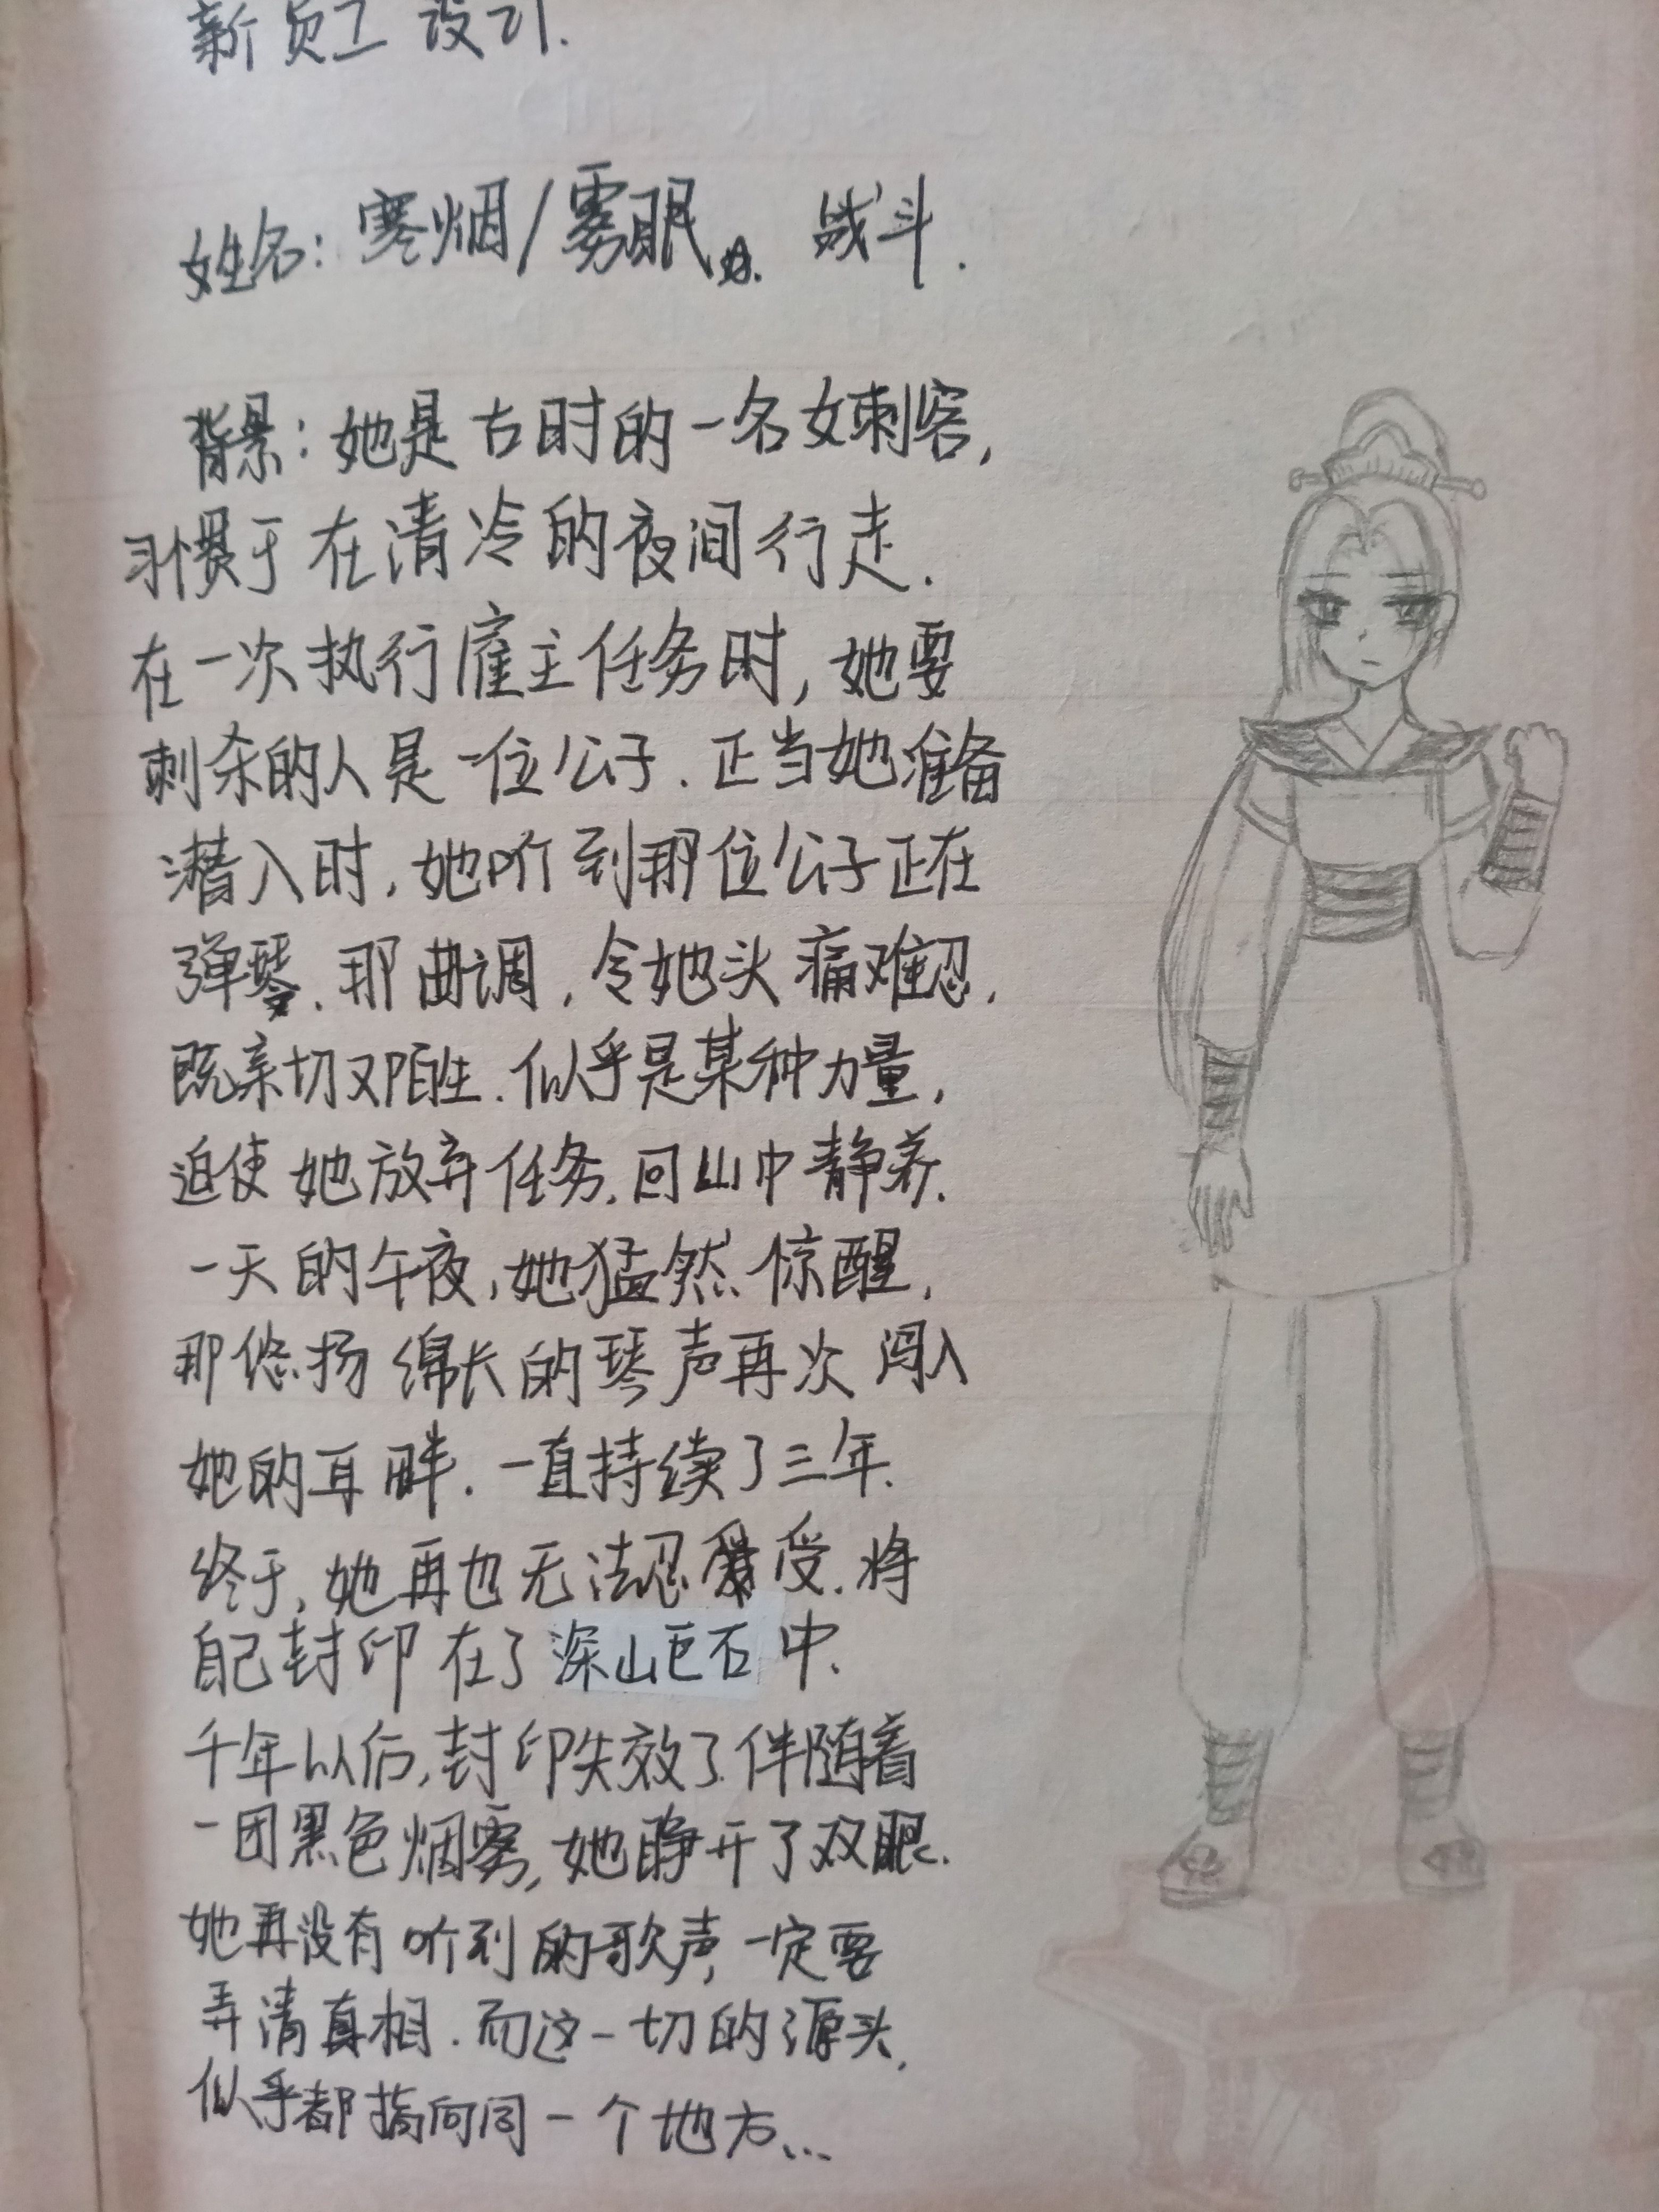 新员工设计.
姓名：寒烟/雾眠. 战斗.
背景：她是古时的一名女刺客,
习惯于在清冷的夜间行走.
在一次执行雇主任务时,她要
刺杀的人是一位公子.正当她准备
潜入时,她听到那位公子正在
弹琴.那曲调,令她头痛难忍,
既亲切又陌生.似乎是某种力量,
迫使她放弃任务.回山中静养.
一天的午夜,她猛然惊醒,
那悠扬绵长的琴声再次闯入
她的耳畔.一直持续了三年.
终于,她再也无法忍受.将
自己封印在了深山巨石中.
千年以后,封印失效了.伴随着
一团黑色烟雾,她睁开了双眼.
她再没有听到的歌声,一定要
弄清真相.而这一切的源头,
似乎都指向同一个地方...